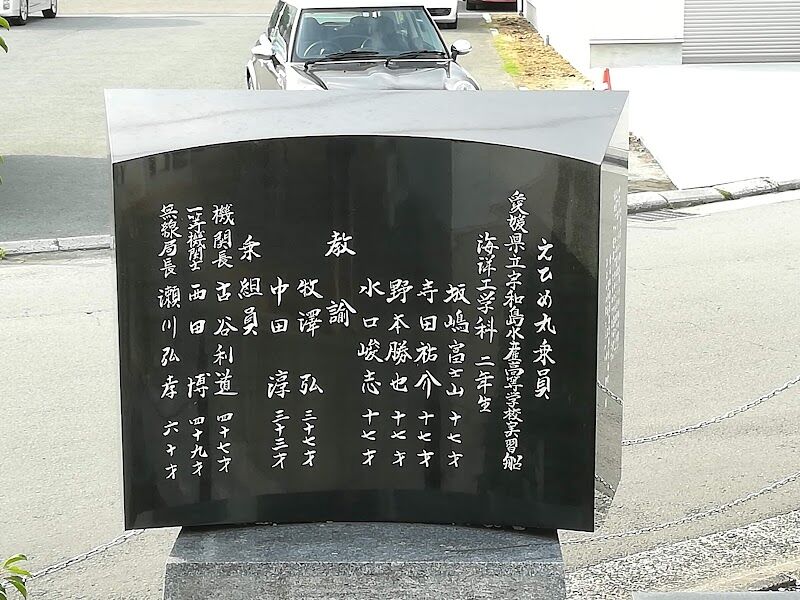 えひめ丸乗員
愛媛県立宇和島水産高等学校実習船
海洋工学科 二年生
坂嶋富士山 十七才
寺田祐介 十七才
野本勝也 十七才
水口峻志 十七才
教諭
牧澤 弘 三十七才
中田 淳 三十三才
乗組員
機関長 古谷利道 四十七才
一等機関士 西田 博 四十九才
無線局長 瀬川弘孝 六十才